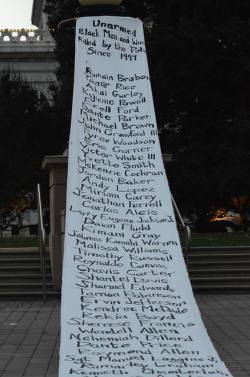 Unarmed
Black Men and Women
Killed by the Police
Since 1999
Rumain Brisbon
Tamir Rice
Akai Gurley
Kajieme Powell
Ezell Ford
Dante Parker
John Crawford III
Tyree Woodson
Eric Garner
Victor White III
Yvette Smith
McKenzie Cochran
Jordan Baker
Andy Lopez
Miriam Carey
Jonathan Ferrell
Carlos Alcis
Larry Eugene Jackson Jr
Deion Fludd
Kimani Gray
Johnnie Kamahi Warren
Malissa Williams
Timothy Russell
Reynaldo Cuevas
Chavis Carter
Shantel Davis
Sharmel Edwards
Tamon Robinson
Ervin Jefferson
Kendrec McDade
Rekia Boyd
Shereese Francis
Wendell Allen
Nehemiah Dillard
Dante Price
Raymond Allen
Manuel
Ramarley Graham
Kenneth Chamberlain